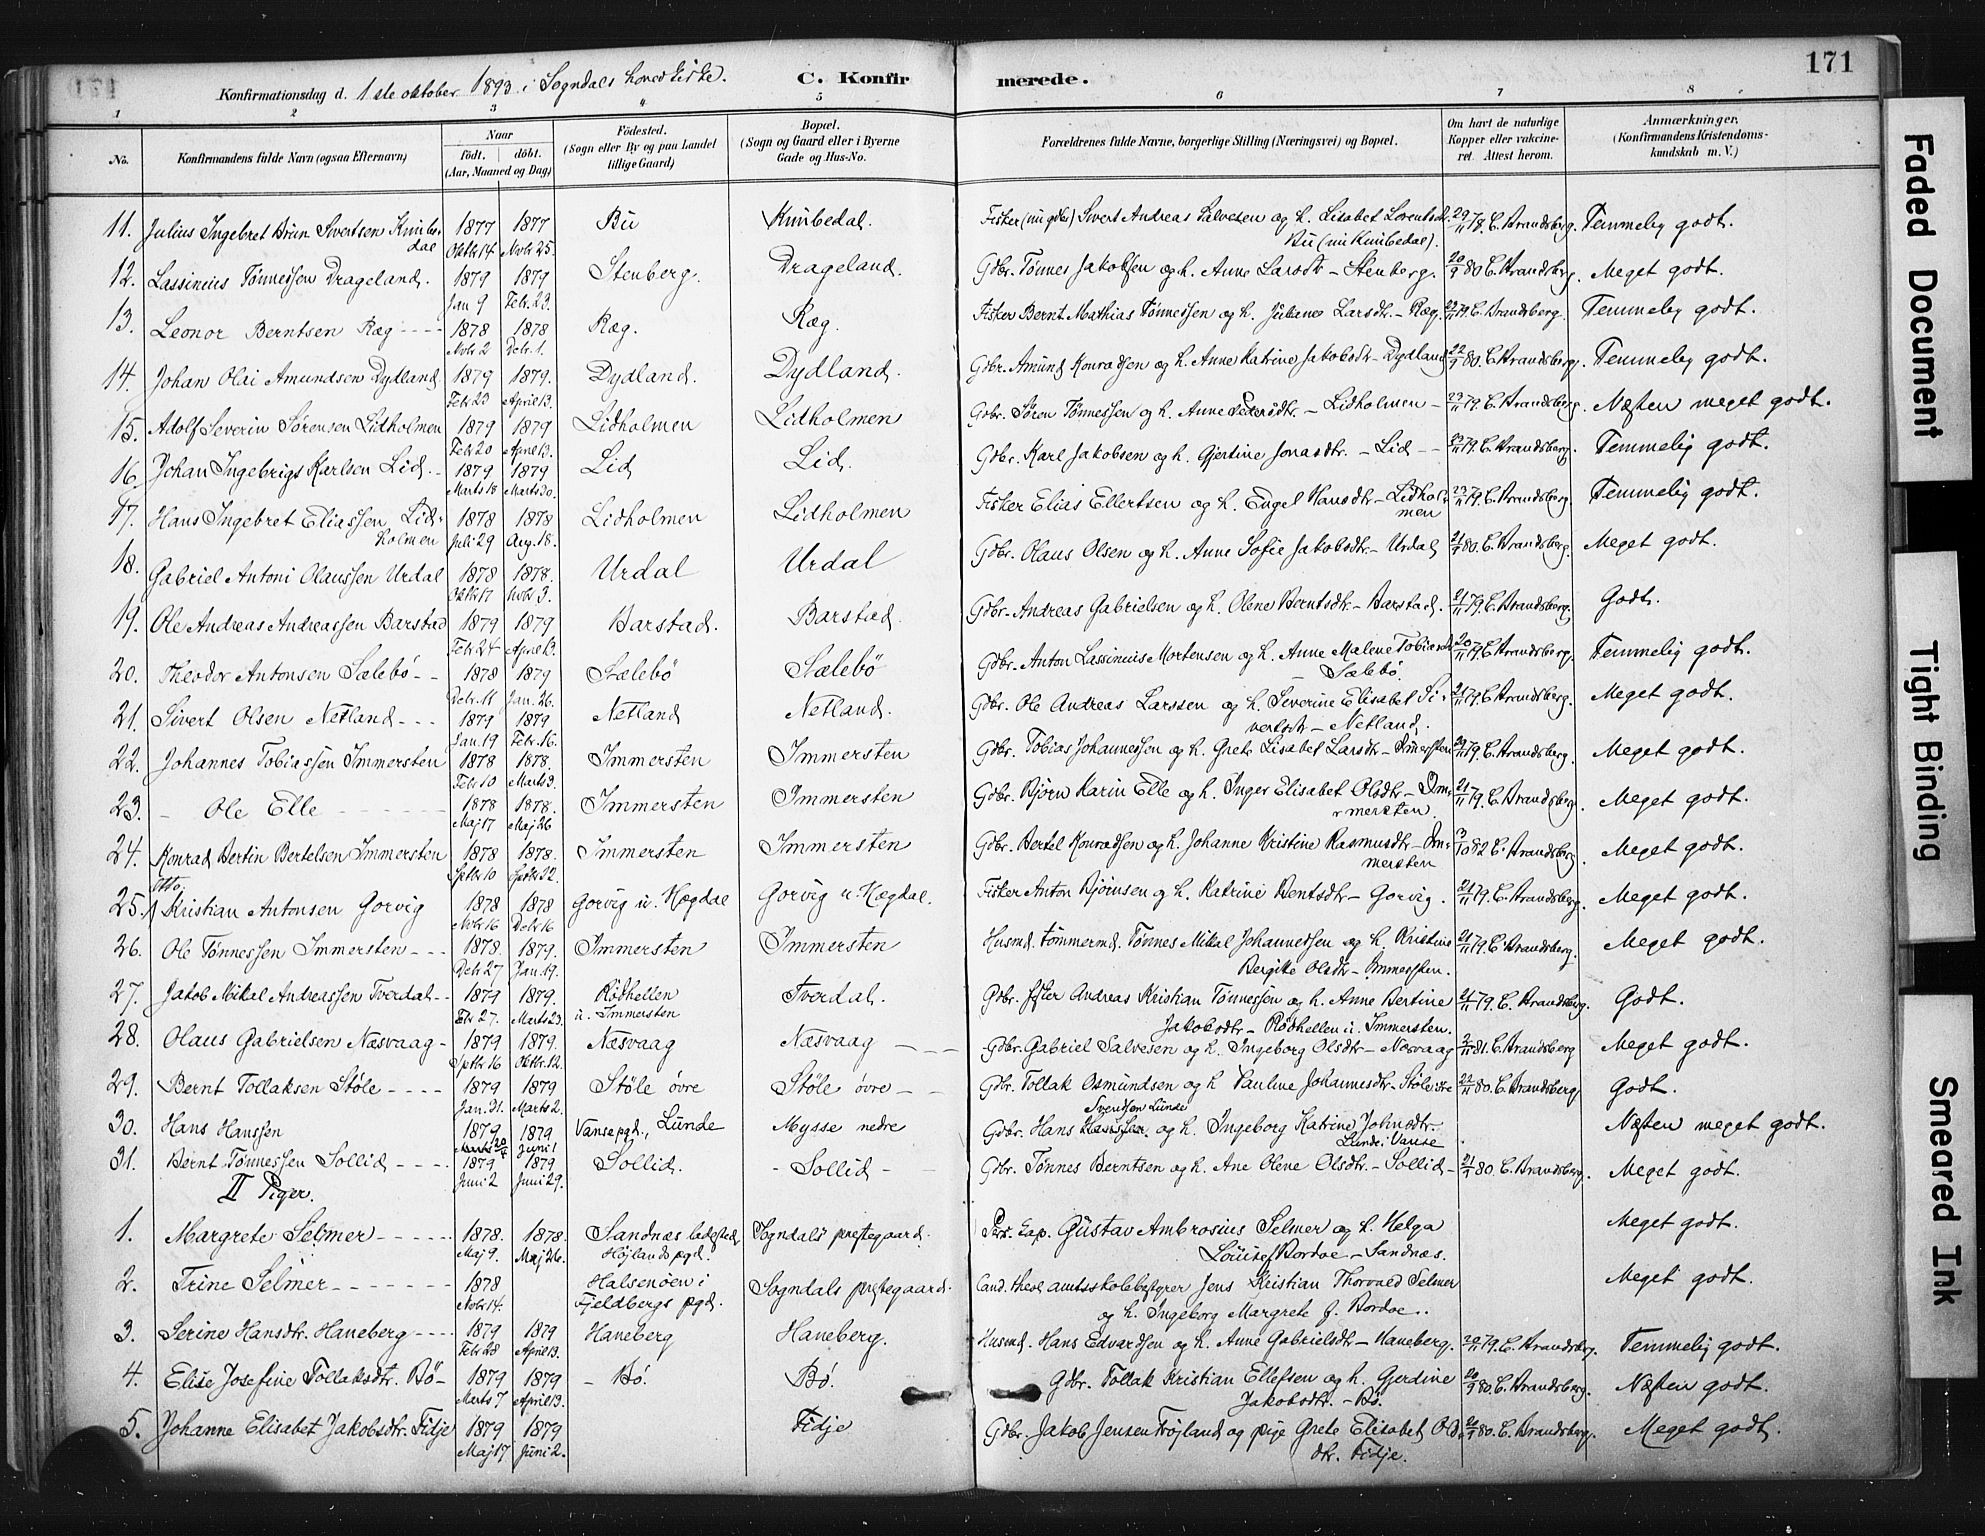 171
Konfirmationsdag d. 1ste oktober 1893 i Sogndals hovedkirke. C. Konfirmerede.
1 2 3 4 5 6 7 8
No. Konfirmandens fulde Navn (ogsaa Efternavn) Naar født. døbt. (Aar, Maaned og Dag) Fødested. (Sogn eller By og paa Landet tillige Gaard) Bopæl. (Sogn og Gaard eller i Byerne Gade og Hus-No. Forældrenes fulde Navne, borgerlige Stilling (Næringsvei) og Bopæl. Om havt de naturlige Kopper eller vakcineret. Attest herom. Anmærkninger. (Konfirmandens Kristendomskundskab m. V.)
11. Julius Ingebret Brun Sivertsen Knibedal 1877 Oktbr 14 1877 Novbr 25. Bu Knibedal. Fisker (nu gdbr) Sivert Andreas Salvesen og h. Lisabet Lorentsdtr. Bu (nu Knibedal). 29/11 78. C. Brandsberg. Temmelig godt.
12. Lassinius Tønnessen Drageland. 1879 Jan 9 1879 Febr. 23. Stenberg. Drageland. Gdbr. Tønnes Jakobsen og h. Anne Larsdtr – Stenberg. 20/9 80 C. Brandsberg. Meget godt.
13. Leonor Berntsen Ræg 1878 Novbr 2 1878 Debr. 1. Ræg. Ræg. Fisker Bernt Mathias Tønnessen og h. Juliane Larsdtr. – Ræg. 23/11 79. C. Brandsberg. Temmelig godt.
14. Johan Olai Amundsen Dydland 1879 Febr 23 1879. April 13. Dydland. Dydland. Gdbr. Amund Konradsen og h. Anne Katrine Jakobsdtr – Dydland 22/9 80. C. Brandsberg. Temmelig godt.
15. Adolf Severin Sørensen Lidholmen 1879 Febr 20 1879 April 13. Lidholmen Lidholmen Gdbr. Søren Tønnessen og h. Anne Pedersdtr. – Lidholmen – 23/11 79. C. Brandsberg. Næsten meget godt.
16. Johan Ingebrigt Karlsen Lid. 1879 Marts 18 1879 Marts 30. Lid Lid. Gdbr. Karl Jakobsen og h. Gjertine Jonasdtr. – Lid – 23/11 79. C. Brandsberg. Temmelig godt.
17. Hans Ingebret Eliassen Lidholmen 1878 Juli 29 1878 Aug. 18. Lidholmen Lidholmen Fisker Elias Ellertsen og h. Engel Hansdtr – Lidholmen 23/11 79. C. Brandsberg. Temmelig godt.
18. Gabriel Antoni Olaussen Urdal 1878 Oktbr 17 1878. Novbr 3. Urdal Urdal Gdbr. Olaus Olsen og h. Anne Sofie Jakobsdtr. – Urdal 21/9 80. C. Brandsberg. Meget godt.
19. Ole Andreas Andreassen Barstad 1879 Febr 24 1879 April 13. Barstad. Barstad. Gdbr. Andreas Gabrielsen og h. Olene Berntsdtr. – Barstad. 21/11 79. C. Brandsberg. Godt.
20. Theodor Antonsen Sælebö 1878 Debr. 11 1879 Jan. 26. Sælebö Sælebö Gdbr. Anton Lassinius Mortensen og h. Anne Malene Tobiasdtr Sælebö. 20/11 79. C. Brandsberg. Temmelig godt.
21. Sivert Olsen Netland 1879 Jan. 19 1879 Febr. 16. Netland Netland. Gdbr. Ole Andreas Larssen og h. Severine Elisabet Sivertsdtr – Netland. 21/11 79. C. Brandsberg. Meget godt.
22. Johannes Tobiassen Immersten 1878 Febr 10 1878. Marts 3. Immersten Immersten Gdbr. Tobias Johannessen og h. Grete Lisabet Larsdtr – Immersten 20/11 79. C. Brandsberg. Meget godt.
23. Ole Elle 1878 Maj 17 1878. Maj 26 Immersten Immersten Gdbr. Bjørn Karin Elle og h. Inger Elisabet Olsdtr – Immersten. 21/11 79. C. Brandsberg. Meget godt.
24. Konrad Bertin Bertelsen Immersten 1878 Septbr 10 1878. Septbr 22. Immersten Immersten Gdbr. Bertel Konradsen og h. Johanne Kristine Rasmusdtr – Immersten 3/10 82 C. Brandsberg. Meget godt.
25. Otto Kristian Antonsen Gorvig 1878 Novbr 16 1878 Debr 16. Gorvig u. Hægdal Gorvig u. Hægdal. Fisker Anton Bjørnsen og h. Katrine Berntsdtr – Gorvig. 21/11 79. C. Brandsberg. Meget godt.
26. Ole Tønnessen Immersten 1878. Debr 27 1879. Jan. 19. Immersten Immersten Husmd. tømmermd. Tønnes Mikal Johannessen og h. Kristine Bergitte Olsdtr – Immersten. 21/11 79. C. Brandsberg. Meget godt.
27. Jakob Mikal Andreassen Tverdal 1879 Febr 27. 1879. Marts 23. Rödhellen u. Immersten Tverdal. Gdbr. Andreas Kristian Tønnessen og h. Anne Bertine Jakobsdtr – Rødhellen u. Immersten. 21/11 79. C. Brandsberg. Godt.
28. Olaus Gabrielsen Næsvaag 1879 Septbr 16 1879. Oktbr. 12. Næsvaag Næsvaag Gdbr. Gabriel Salvesen og h. Ingeborg Olsdtr – Næsvaag 2/11 81. C. Brandsberg Meget godt.
29. Bernt Tollaksen Støle 1879 Jan. 31. 1879 Marts 2. Støle övre Støle övre Gdbr. Tollak Osmundsen og h. Pauline Johannesdtr – Støle övre 22/11 80. C. Brandsberg Godt.
30. Hans Hanssen 1879 1879 Juni 1 Vanse pgd., Lunde Mysse nedre Gdbr. Hans Svendsen Lunde og h. Ingeborg Katrine Johnsdtr. Lunde i Vanse Næsten meget godt.
31. Bernt Tønnessen Sollid 1879 Juni 2 1879 Juni 29. Sollid. Sollid Gdbr. Tønnes Berntsen og h. Ane Olene Olsdtr. – Sollid – 21/9 80. C. Brandsberg. Meget godt.
II Piger.
1. Margrete Selmer 1878. Maj 9. 1878. Maj 26. Sandnæs ladested Højlands pgd. Sogndals prestegaard. Pers. Cap. Gustav Ambrosius Selmer og h. Helga Louise f. Bordoe – Sandnæs. Meget godt.
2. Trine Selmer 1878 Novbr 14. Halsenöen i Fjeldbergs pgd. Sogndals prestegaard. Cand. theol amtsskolebestyrer Jens Kristian Thorvald Selmer og h. Ingeborg Margrete f. Bordoe. Meget godt.
3. Serine Hansdtr. Haneberg 1879 Febr 28 1879 April 13. Haneberg Haneberg. Husmd. Hans Edvardsen og h. Anne Gabrielsdtr – Haneberg. 20/11 79. C. Brandsberg. Temmelig godt.
4. Elise Josefine Tollaksdtr. Bö 1879 Marts 7 1879 April 13. Bö. Bö. Gdbr. Tollak Kristian Ellefsen og h. Gjerdine Jakobsdtr. – Bö. 20/9 80. C. Brandsberg. Næsten godt.
5. Johanne Elisabet Jakobsdtr. Fidje 1879 Maj 17 1879 Juni 2. Fidje Gdbr. Jakob Jensen Frøjland og pige Grete Elisabet Olsdtr. Fidje. 20/9 80. C. Brandsberg. Meget godt.
Faded Document
Tight Binding
Smeared Ink